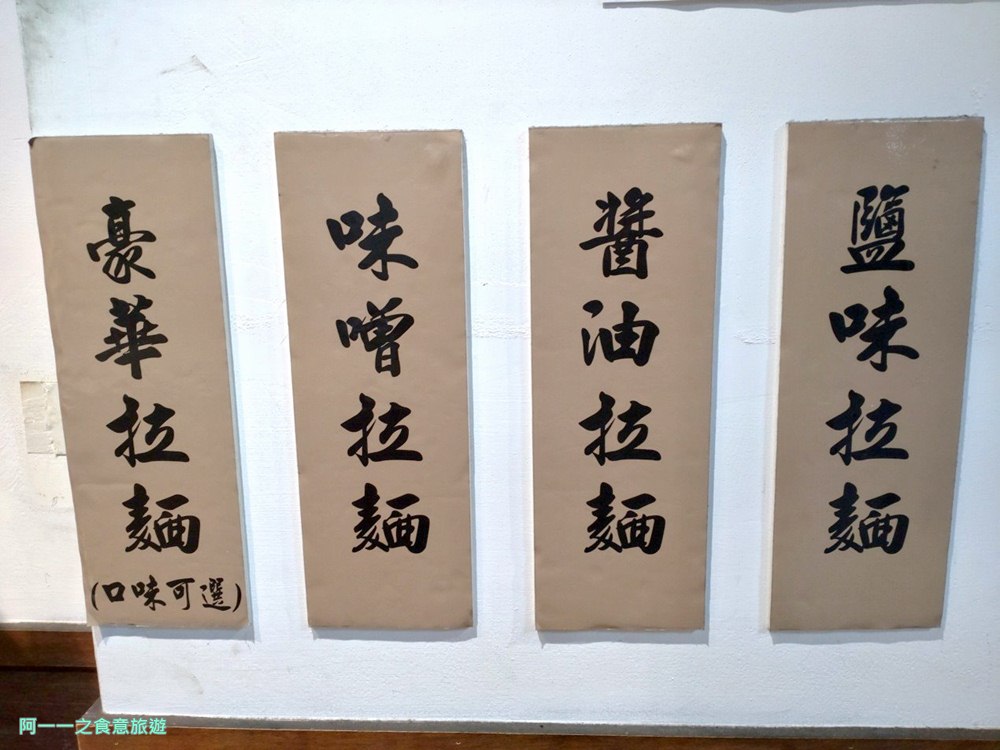 鹽味拉麵
醬油拉麵
味噌拉麵
豪華拉麵
(口味可選)
阿一一之食意旅遊